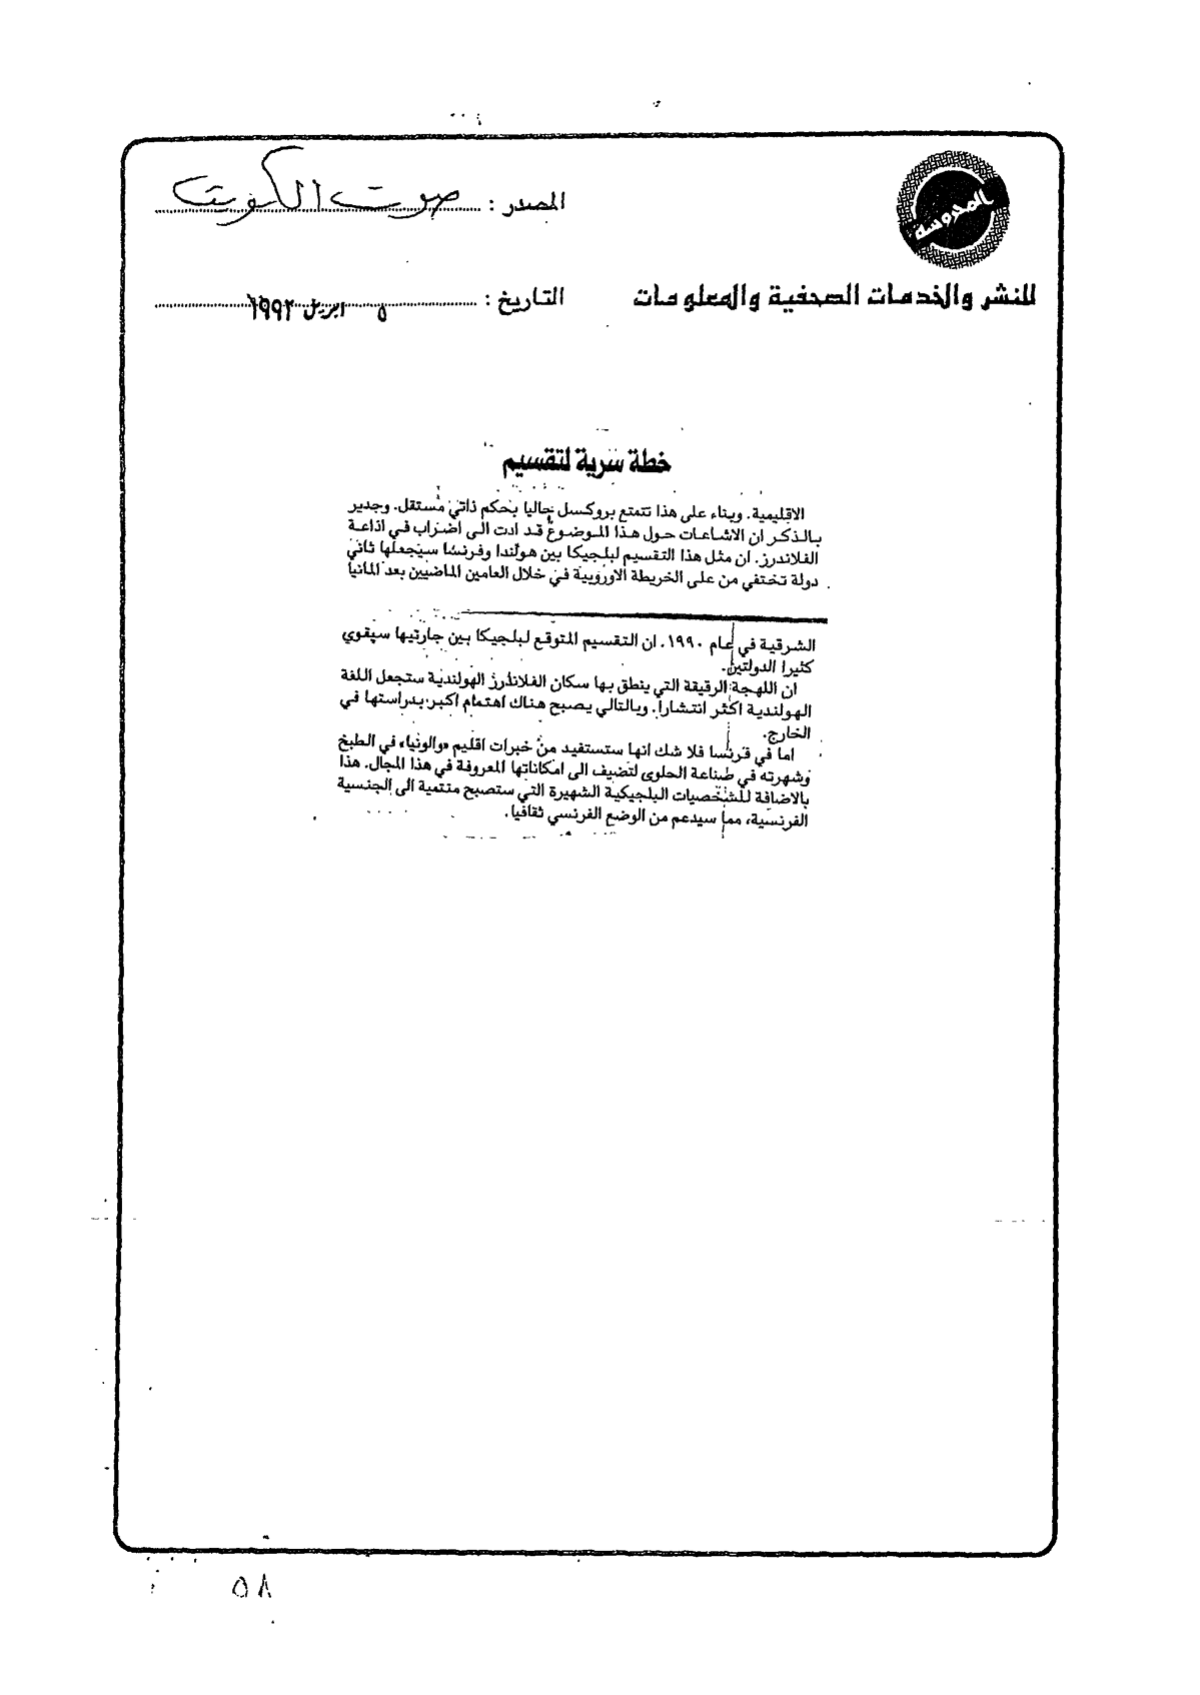 المحروسة
المصدر : صوت الكويت
للنشر والخدمات الصحفية والمعلومات
التاريخ : ٥ ابريل ١٩٩٢
خطة سرية لتقسيم
الاقليمية. وبناء على هذا تتمتع بروكسل حاليا بحكم ذاتي مستقل. وجدير
بالذكر ان الاشاعات حول هذا الموضوع قد ادت الى اضراب في اذاعة
الفلاندرز. ان مثل هذا التقسيم لبلجيكا بين هولندا وفرنسا سيجعلها ثاني
دولة تختفي من على الخريطة الاوروبية في خلال العامين الماضيين بعد المانيا
الشرقية في عام ١٩٩٠. ان التقسيم المتوقع لبلجيكا بين جارتيها سيقوي
كثيرا الدولتين.
ان اللهجة الرقيقة التي ينطق بها سكان الفلاندرز الهولندية ستجعل اللغة
الهولندية اكثر انتشارا. وبالتالي يصبح هناك اهتمام اكبر بدراستها في
الخارج.
اما في فرنسا فلا شك انها ستستفيد من خبرات اقليم «والونيا» في الطبخ
وشهرته في صناعة الحلوى لتضيف الى امكاناتها المعروفة في هذا المجال. هذا
بالاضافة للشخصيات البلجيكية الشهيرة التي ستصبح منتمية الى الجنسية
الفرنسية، مما سيدعم من الوضع الفرنسي ثقافيا.
٥٨